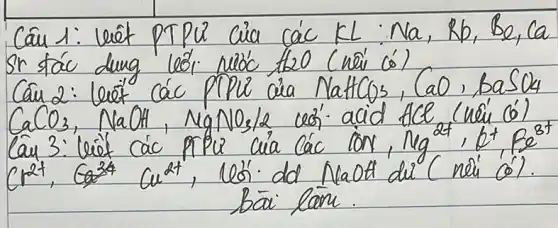 Câu 1: Viết PTPƯ của các KL : Na, Rb, Be, Ca
Sr tác dụng với nước H2O (nếu có)
Câu 2: Viết các PTPƯ của NaHCO3, CaO, BaSO4
CaCO3, NaOH, Mg(NO3)2 với acid HCl (nếu có)
Câu 3: Viết các PTPƯ của các ION, Mg2+, K+, Fe3+
Cr2+, Cu2+, với dd NaOH dư (nếu có).
bài làm.